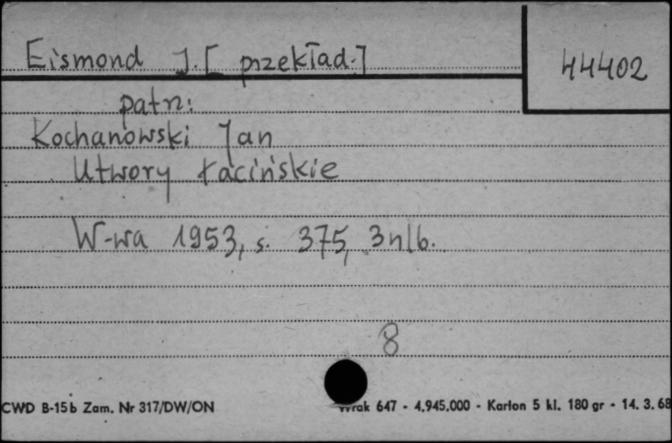 Eismond J. [przekład.]
44402
patrz:
Kochanowski Jan
Utwory łacińskie
W-wa 1953, s. 375, 3nlb.
8
CWD B-15b Zam. Nr 317/DW/ON
647 - 4.945.000 - Karton 5 kl. 180 gr - 14. 3. 68